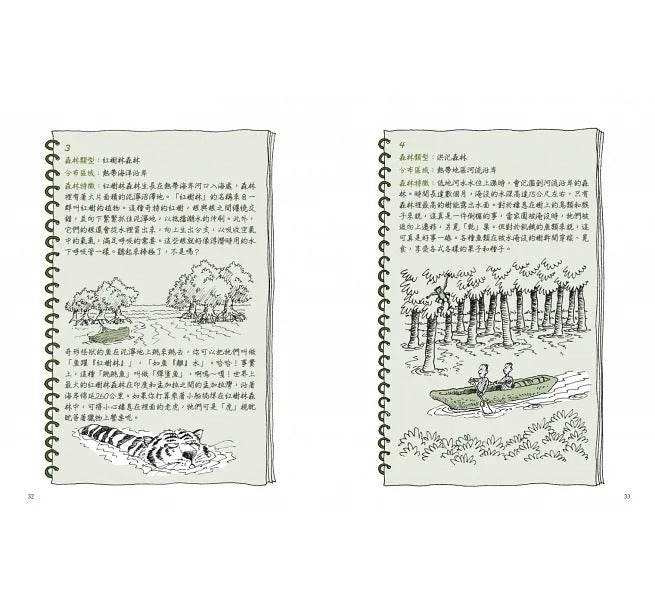 3
森林類型：紅樹林森林
分布區域：熱帶海洋沿岸
森林特徵：紅樹林森林生長在熱帶海岸河口入海處，森林
裡有著大片面積的泥濘沼澤地。「紅樹林」的名稱來自一
群叫紅樹的植物。這種奇特的紅樹，根與根之間纏繞交
錯，並向下緊緊抓住泥濘地，以抵擋潮水的沖刷。此外，
它們的根還會從水裡冒出來，向上生出分支，以吸收空氣
中的氧氣，滿足呼吸的需要。這些根就好像浮潛時用的水
下呼吸管一樣。聽起來棒極了，不是嗎？
奇形怪狀的魚在泥濘地上跳來跳去，你可以把牠們叫做
「魚躍『紅樹林』」，「如魚『離』水」。哈哈！事實
上，這種「跳跳魚」叫做「彈塗魚」，啊嗚～嘎！世界上
最大的紅樹林森林在印度和孟加拉之間的孟加拉灣，沿著
海岸綿延260公里。如果你打算乘著小船徜徉在紅樹林森
林中，可得小心棲息在裡面的老虎，牠們可是「虎」視眈
眈等著獵物上餐桌呢。
32
4
森林類型：洪氾森林
分布區域：熱帶地區河流沿岸
森林特徵：低地河水水位上漲時，會氾濫到河流沿岸的森
林。時間長達數個月，淹沒的水深高達15公尺左右，只有
森林裡最高的樹能露出水面。對於棲息在樹上的鳥類和猴
子來說，這真是一件倒楣的事。當家園被淹沒時，牠們被
迫向上遷移，另覓「乾」巢。但對於飢餓的魚類來說，這
可真是好事一樁。各種魚類在被水淹沒的樹幹間穿梭、覓
食，享受各式各樣的果子和種子。
33